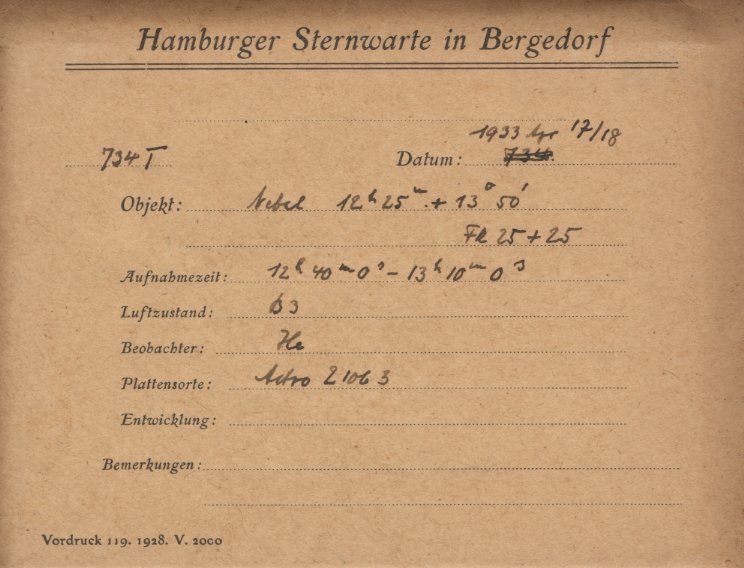 Hamburger Sternwarte in Bergedorf
1933 Apr 17/18
734 T Datum: 734
Objekt: Nebel 12h 25m + 13° 50'
FR 25 + 25
Aufnahmezeit: 12h 40m 0s - 13h 10m 0s
Luftzustand: B 3
Beobachter: He
Plattensorte: Astro 21063
Entwicklung:
Bemerkungen:
Vordruck 119. 1928. V. 2000